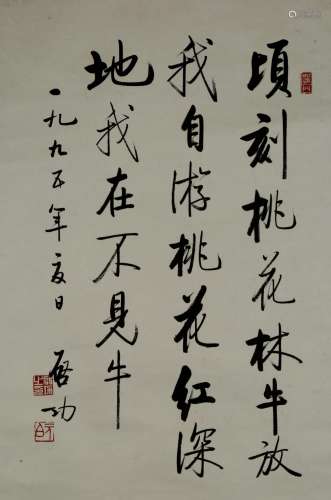 頃刻桃花林牛放
我自游桃花紅深
地我在不見牛
一九九五年夏日
啓功